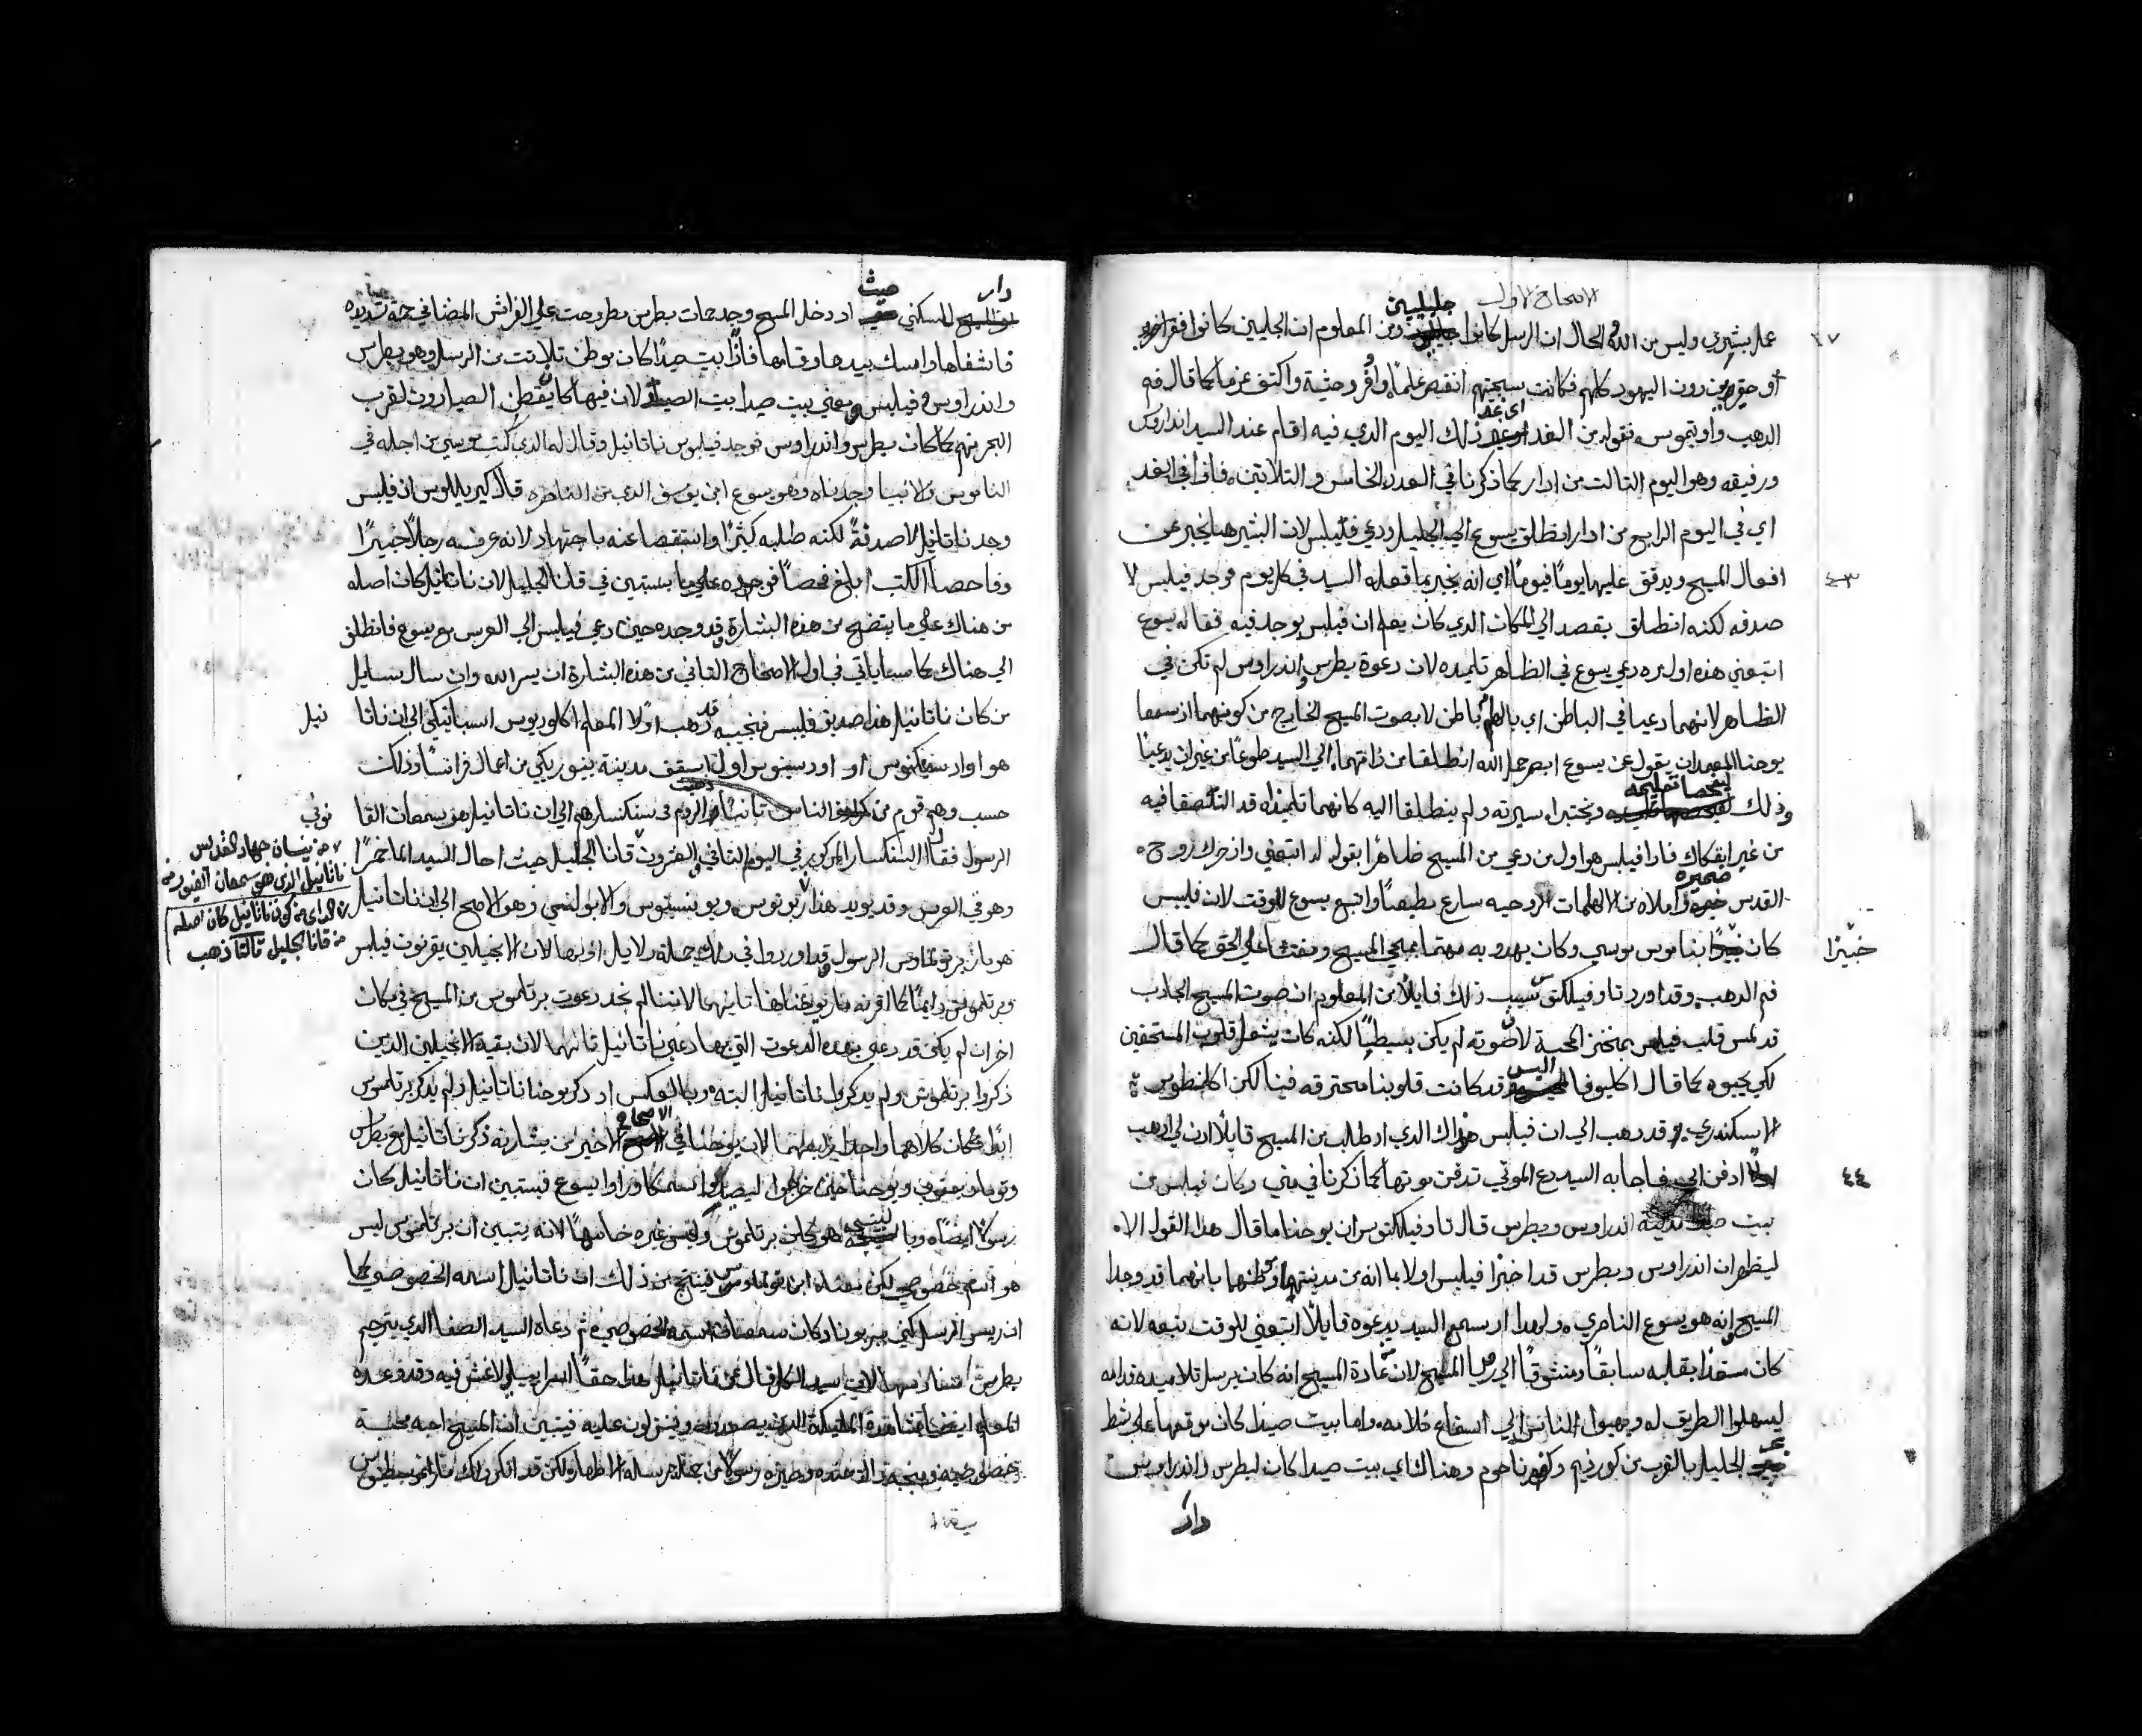 الاصحاح الاول
جليليين
عمل بشري وليس من الله والحال ان الرسل كانوا ومن المعلوم ان الجليليين كانوا افقر
او حقيرين دون اليهود كلهم فكانت سجيتهم انقص علما واكتف عزما كما قال فم
اي غد
الدهب واوتيموس فقوله من الغد ذلك اليوم الدي فيه اقام عند السيد اندراوس
ورفيقه وهو اليوم التالت من ادار كما ذكرنا في العدد الخامس والتلاتين فادا في الغد
اي في اليوم الرابع من ادار انطلق يسوع الي الجليل ودعي فيلبس لان البشير هنا يخبر عن
٤٣
افعال المسيح ويدقق عليها يوما فيوما اي انه يخبر بما فعله السيد في كل يوم فوجد فيلبس لا
صدفه لكنه انطلق بقصد الي المكان الدي كان يعلم ان فيلبس يوجد فيه فقال له يسوع
اتبعني هده اول مره دعي يسوع في الظاهر تلميده لان دعوة بطرس واندراوس لم تكن في
الظاهر لانهما دعيا في الباطن اي بالهام باطن لا بصوت المسيح الخارج من كونهما اد سمعا
يوحنا المعمدان يقول عن يسوع ابصر حمل الله انطلقا من داتهما الي السيد طوعا من غير ان يدعيا
ليفحصا تعليمه
ودلك ويختبرا سيرته ولم ينطلقا اليه كانهما تلميداه قد التصقا فيه
من غير انفكاك فادا فيلبس هو اول من دعي من المسيح ظاهرا بقوله له اتبعني واد حركه روح
ضميره
القدس واملاه من الالهامات الروحيه سارع مطيعا واتبع يسوع للوقت لان فيلبس
خبيرا
كان خبيرا بناموس موسي وكان يهدو به مهتما بمجي المسيح ومفتشا علي الحق كما قال
فم الدهب وقد اورد تاوفيلكتوس سبب دلك قايلا من المعلوم ان صوت المسيح الجادب
قد لمس قلب فيلبس بمنخز المحبة لان صوته لم يكن بسيطا لكنه كان يشعل قلوب المستحقين
اليس
لكي يحبوه كما قال اكليوفا قد كانت قلوبنا محترقه فينا لكن اكليمنطوس
الاسكندري قد دهب الي ان فيلبس هو داك الدي اد طلب من المسيح قايلا ادن لي ادهب
٤٤
اولا ادفن ابي فاجابه السيد دع الموتي تدفن موتها كما دكرنا في متي وكان فيلبس من
بيت صيدا مدينة اندراوس وبطرس قال تاوفيلكتوس ان يوحنا ما قال هدا القول الا
ليظهر ان اندراوس وبطرس قد اخبرا فيلبس اولا بما انه من مدينتهما ووطنهما بانهما قد وجدا
المسيح وانه هو يسوع الناصري ولهدا اد سمع السيد يدعوه قايلا اتبعني للوقت تبعه لانه
كان مستعدا بقلبه سابقا ومتشوقا الي المسيح لان عادة المسيح انه كان يرسل تلاميده قدامه
ليسهلوا الطريق له ويهيوا الناس الي استماع كلامه واما بيت صيدا كان موقعها علي شط
بحر
الجليل بالقرب من كورزيم وكفرناحوم وهناك اي بيت صيدا كان لبطرس واندراوس
دار
دار حيث
للسكني اد دخل المسيح وجد حمات بطرس مطروحت علي الفراش
فاشفاها وامسك بيدها وقامها فادا بيت صيدا كان موطن تلاتت من الرسل وهو بطرس
واندراوس وفيلبس ومعني بيت صيدا بيت الصياد لان فيها كان يقطن الصيادون لقرب
البحر منهم كما كان بطرس واندراوس فوجد فيلبوس ناتانيل وقال له الدي كتب موسي من اجله في
الناموس والانبيا وجدناه وهو يسوع ابن يوسف الدي من الناصره قال كيريللوس ان فيلبس
وجد ناتانيل لا صدفة لكنه طلبه كثيرا واستقصا عنه باجتهاد لانه عرفه رجلا خبيرا
وفاحصا الكتب ابلغ فحصا فوجده علي ما يستبين في قانا الجليل لان ناتانيل كان اصله
من هناك علي ما يتضح من هده البشارة وقد وجده حين دعي فيلبس الي العرس مع يسوع فانطلق
الي هناك كما سياتي في اول الاصحاح التاني من هده البشارة ان يسر الله وان سال سايل
من كان ناتانيل هدا صديق فيلبس فنجيبه قد دهب اولا المعلم اكلوديوس اسبانيكي الي ان ناتا نيل
هو اول اسقف مدينة من اعمال فرانسا ودلك
حسب وهم قوم من الناس تانيا دهبت الروم في سنكسارهم الي ان ناتانيل هو سمعان القا نوني
الرسول فقال السنكسار المدكور في اليوم التاني والعشرون قانا الجليل حيث احال السيد الما خمرا
من نيسان جهاد القديس
ناتانيل الدي هو سمعان الغيور من
وهو في العرس وقد يويد هدا وهو الاصح الي ان ناتانيل
الراي من كون ناتانيل كان اصله
من قانا الجليل تالتا دهب
هو مار برتولماوس الرسول وقد اوردوا في دلك جملة دلايل اولها لان الانجيليين يقرنون فيلبس
وبرتلموس دايما كما اقرنه مار يوحنا هنا تانيهما لاننا لم نجد دعوت برتلموس من المسيح في مكان
اخر ان لم يكن قد دعي بهده الدعوت التي بها دعي ناتانيل تالتهما لان بقية الانجيليين الدين
دكروا برتلموس ولم يدكروا ناتانيل البته وبالعكس اد دكر يوحنا ناتانيل ولم يدكر برتلموس
الاصحاح
ابدا فكان كلاهما واحدا رابعهما لان يوحنا في الاخير من بشارته دكر ناتانيل مع بطرس
وتوما ويعقوب ويوحنا حين خرجوا ليصيدوا السمك وراوا يسوع فيستبين ان ناتانيل كان
رسولا ايضا وبالنتيجه هو كان برتلموس وليس غيره خامسها لانه يتبين ان برتلموس ليس
هو اسم خصوصي لكن معناه ابن تولماوس فينتج من دلك ان ناتانيل اسمه الخصوصي كما
ان ريس الرسل كني ببريونا وكان سمعان اسمه الخصوصي ثم دعاه السيد الصفا الدي يترجم
بطرس لان سيد الكل قال عن ناتانيل هدا حقا اسراييلي لا غش فيه وقد وعده
المعلم ايضا الملايكة الدين يصعدون وينزلون عليه فيتبين ان المسيح احبه محبة
خصوصيه وصيره رسولا من جملة رسله الاطهار ولكن قد انكر دلك مار